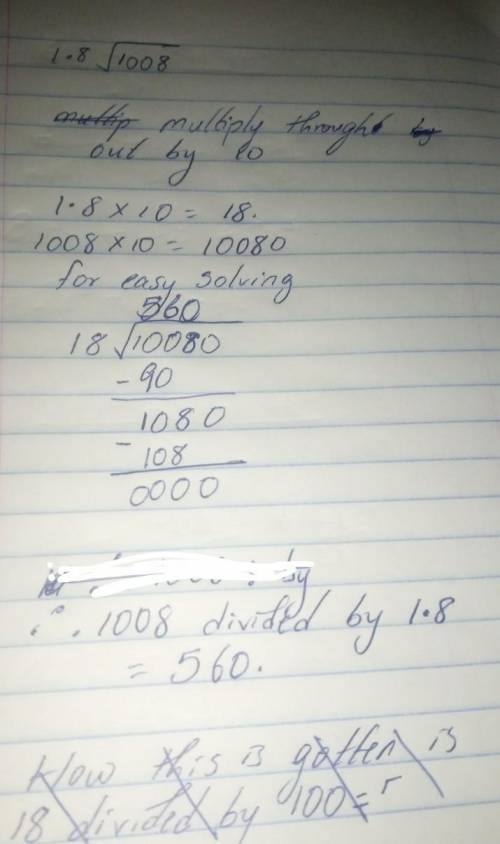 1.8 √1008
multip multiply through by
out by 10
1.8 × 10 = 18.
1008 × 10 = 10080
for easy solving
560
18 √10080
- 90
1080
- 108
0000
by
∴ 1008 divided by 1.8
= 560.
How this is gotten is
18 divided by 100 = 5